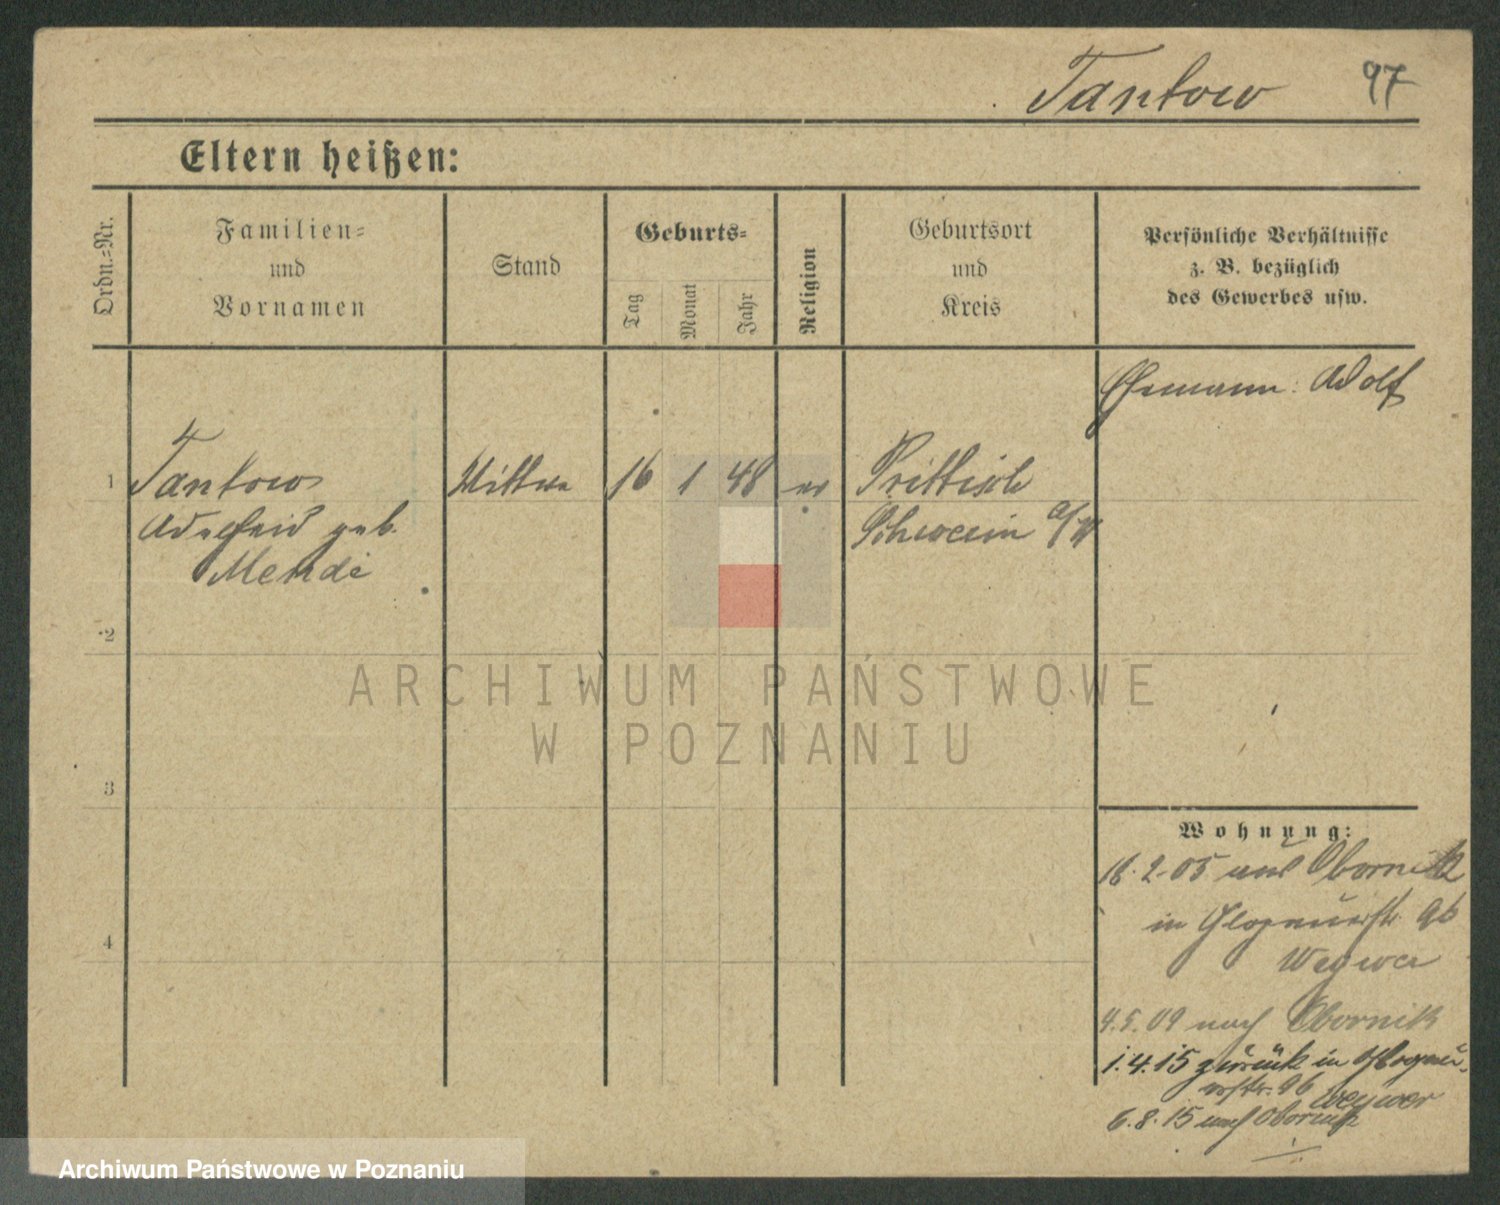 Tantow 97
Eltern heißen:
Ordn.=Nr.
Familien=
und
Vornamen
Stand
Geburts=
Tag
Monat
Jahr
Religion
Geburtsort
und
Kreis
Persönliche Verhältnisse
z. B. bezüglich
des Gewerbes usw.
Ehemann: Adolf
1 Tantow Wittwe 16 1 48 ev Prittisch
Adelheid geb. Schwerin a/W
Mende
2
3
4
Wohnung:
18.2.05 aus Obornik
in Glogauerstr. 96
Wegner
4.5.09 nach Obornik
1.4.15 zurück in Glogau
erstr. 96
6.8.15 nach Obornik
ARCHIWUM PAŃSTWOWE
W POZNANIU
Archiwum Państwowe w Poznaniu